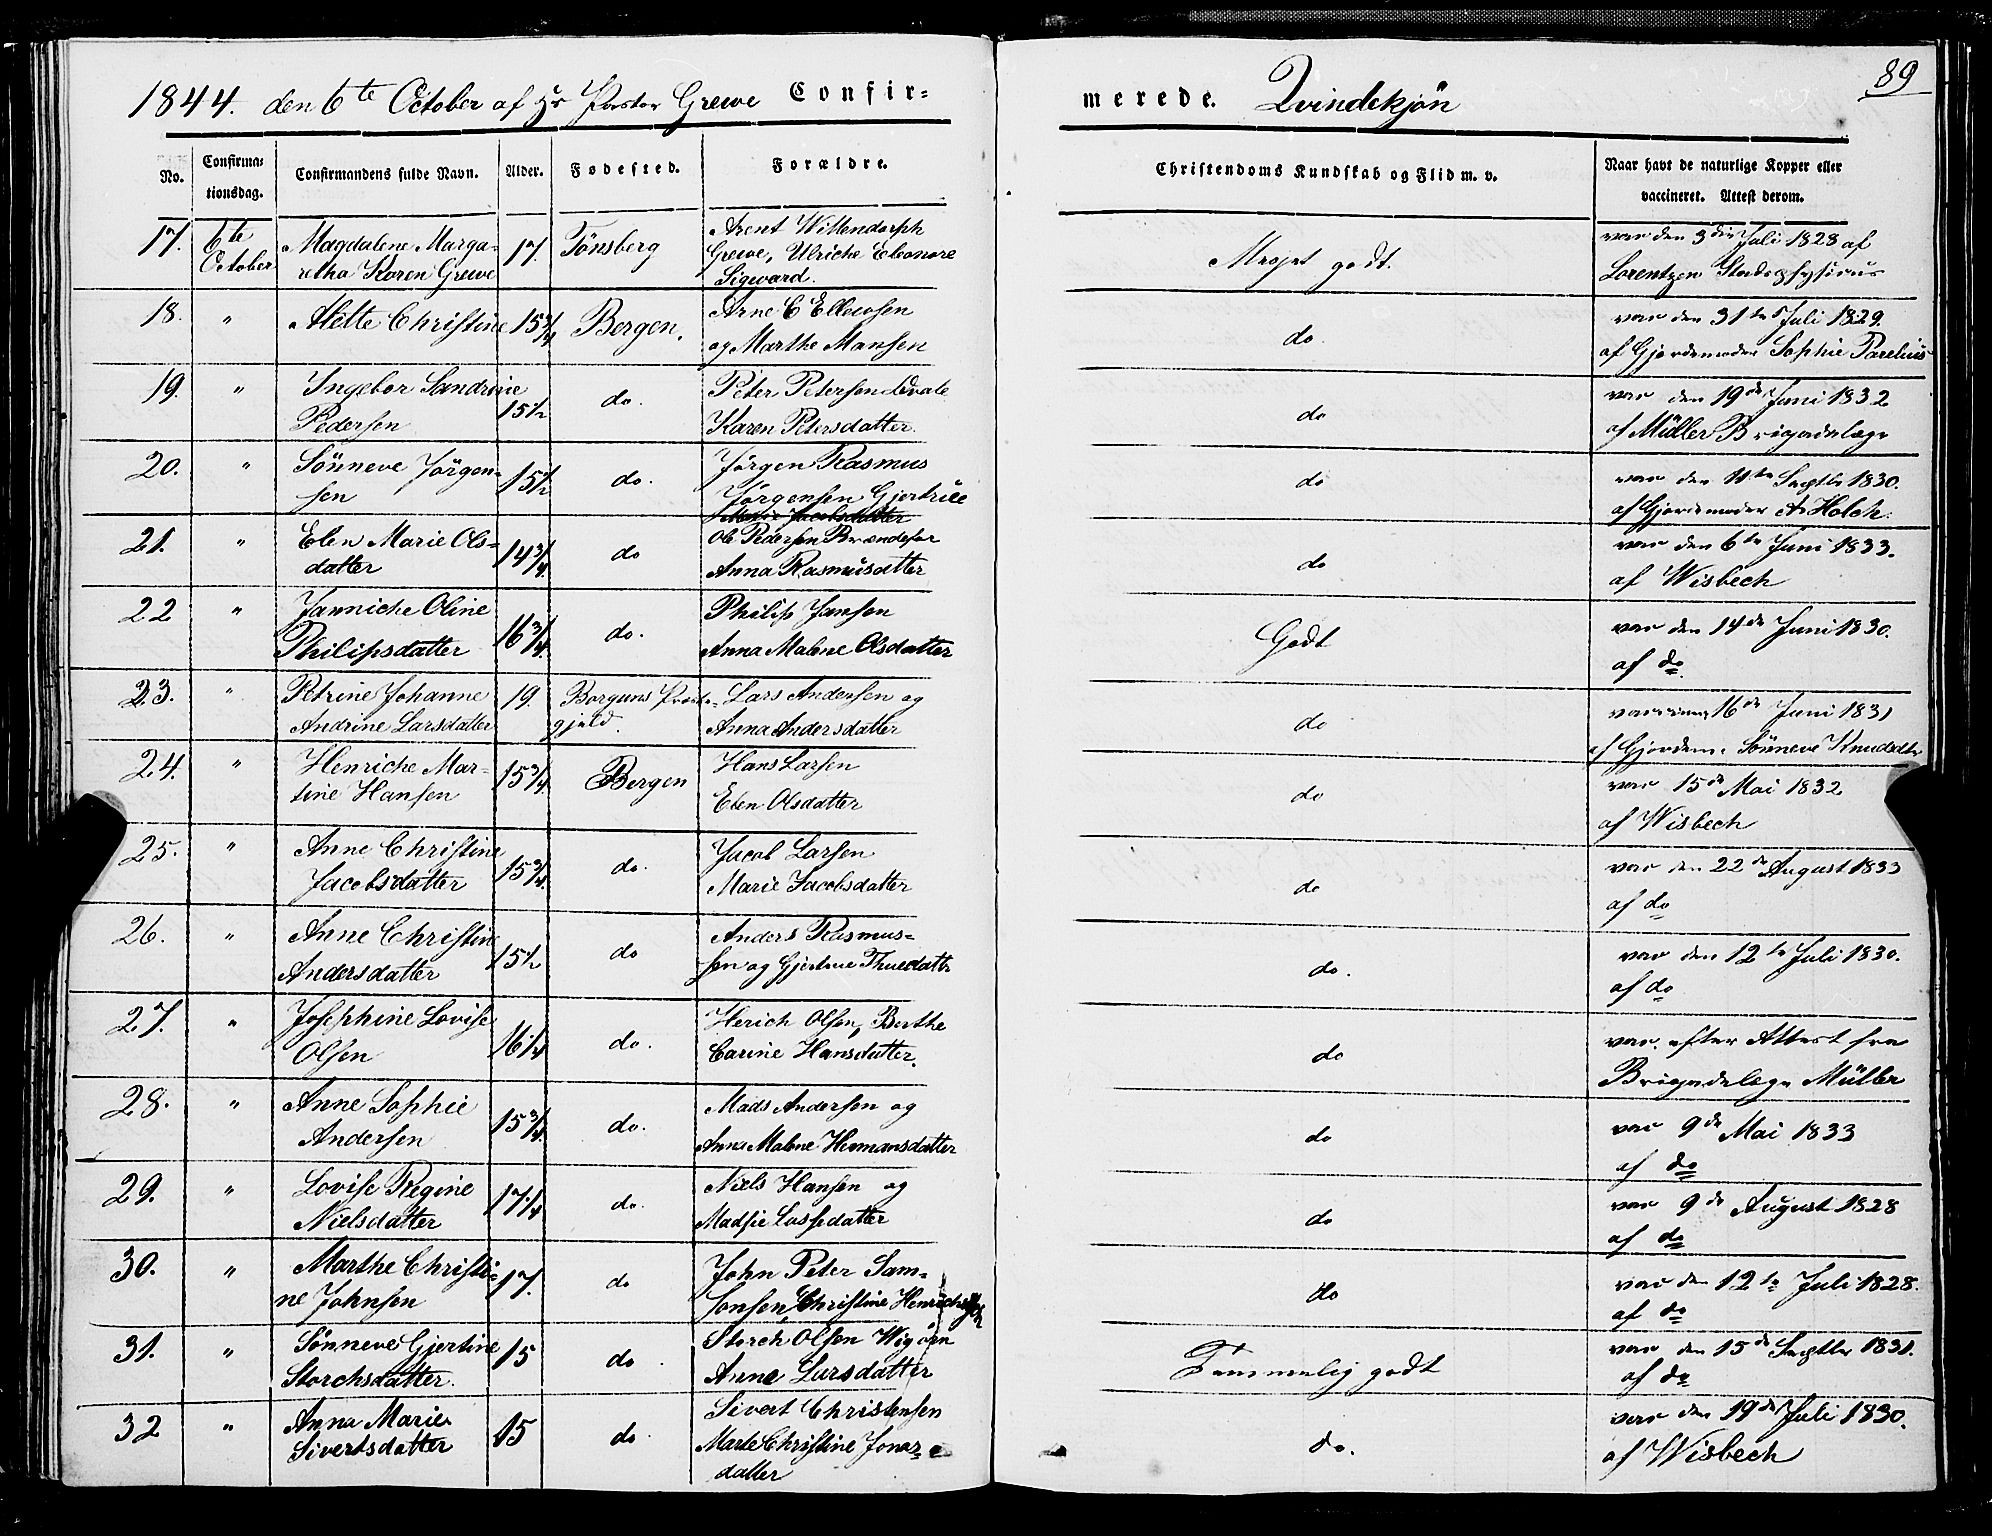 1844. den 6te October af Hr Pastor Grewe Confir=
merede. Qvindekjön
89
No.
Confirma=
tionsdag.
Confirmandens fulde Navn.
Alder.
Fødested.
Forældre.
Christendoms Kundskab og Flid m. v.
Naar havt de naturlige Kopper eller
vaccineret. Attest derom.
17. 6te October Magdalene Marga=
retha Karen Grewe 17. Tönsberg Arent Wittendorph
Grewe, Ulriche Eleonore
Sigward.
Meget godt. vac den 3die Juli 1828 af
Lorentzen Stadsphysicus
18. " Alette Christine 15 3/4 Bergen. Arne C Ellewsen
og Marthe Monsen
do. vac den 31te Juli 1829.
af Gjordemoder Sophie Parelius
19. " Ingebor Sandrine
Pedersen 15 1/2 do. Peter Petersen
Karen Petersdatter.
do vac den 19de Juni 1832
af Müller Brigadelæge
20. " Sönneve Jörgen=
sen 15 1/2 do. Jörgen Rasmus
Jörgensen Gjertrue
Marie Jacobsdatter
do vac den 11te Septbr 1830.
af Gjordemoder A Holck.
21. " Elen Marie Ols=
datter 14 3/4. do Ole Pedersen
Anna Rasmusdatter
do vac den 6te Juni 1833.
af Wisbech
22 " Janniche Oline
Philipsdatter 16 3/4. do. Philip Jansen
Anna Malene Olsdatter
Godt vac den 14de Juni 1830.
af do
23. " Petrine Johanne
Andrine Larsdatter 19. Borgunds Præste=
gjeld. Lars Andersen og
Anna Andersdatter
do 16de Juni 1831
af Gjordem. Sönneve Knudsdtr
24. " Henriche Mar=
tine Hansen 15 3/4. Bergen Hans Larsen
Elen Olsdatter
do vac 15de Mai 1832
af Wisbech
25. " Anne Christine
Jacobsdatter 15 3/4. do. Jacob Larsen
Marie Jacobsdatter
do vac den 22de August 1833
af do
26. " Anne Christine
Andersdatter 15 1/2 do Anders Rasmus=
sen og Gjertrue
do. vac den 12te Juli 1830.
af do
27. " Josephine Lovise
Olsen 16 1/4 do. Herich Olsen, Berthe
Carine Hansdatter.
do vac. efter Attest fra
Brigadelæge Müller
28. " Anne Sophie
Andersen 15 3/4. do. Mads Andersen og
Anna Malene Hermansdatter
do vac 9de Mai 1833
af do
29. " Lovise Regine
Nielsdatter 17 1/4 do. Niels Hansen og
Madsie Lassedatter
do vac 9de August 1828
af do
30. " Marthe Christi=
ne Johnsen 17. do John Peter Sam=
sonsen, Christine
do vac den 12te Juli 1828.
af do
31. " Sönneve Gjertine
Storchsdatter. 15 do Storch Olsen
Anne Larsdatter
Temmelig godt vac den 15de Septbr 1831.
af do
32 " Anna Marie
Sivertsdatter 15 do. Sivert Christensen
Marte Christine Jonas=
datter
do. vac den 19de Juli 1830.
af Wisbech